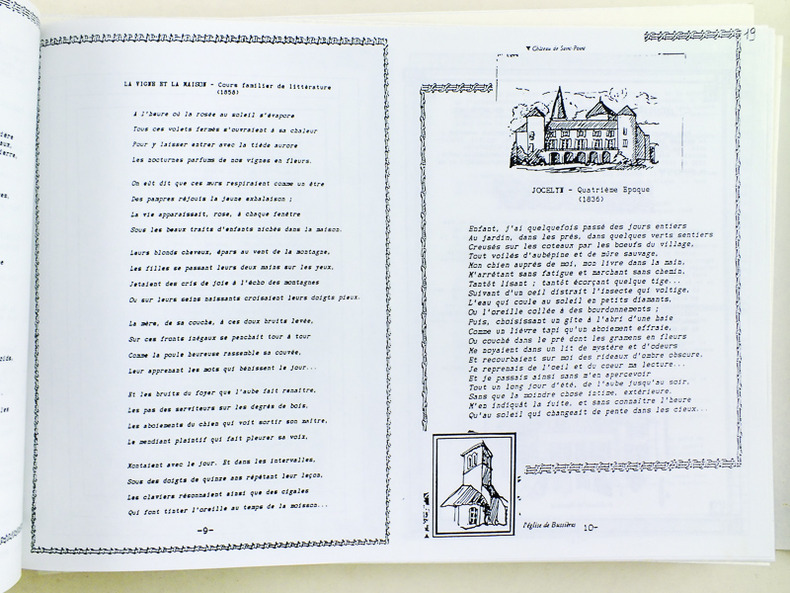 LA VIGNE ET LA MAISON - Cours familier de littérature
(1858)
A l'heure où la rosée au soleil s'évapore
Tous ces volets fermés s'ouvraient à sa chaleur
Pour y laisser entrer avec la tiède aurore
Les nocturnes parfums de nos vignes en fleurs.
On eût dit que ces murs respiraient comme un être
Des pampres réjouis la jeune exhalaison ;
La vie apparaissait, rose, à chaque fenêtre
Sous les beaux traits d'enfants nichés dans la maison.
Leurs blonds cheveux, épars au vent de la montagne,
Les filles se passant leurs deux mains sur les yeux,
Jetaient des cris de joie à l'écho des montagnes
Ou sur leurs seins naissants croisaient leurs doigts pieux.
La mère, de sa couche, à ces doux bruits levée,
Sur ces fronts inégaux se penchait tour à tour
Comme la poule heureuse rassemble sa couvée,
Leur apprenant les mots qui bénissent le jour...
Et les bruits du foyer que l'aube fait renaître,
Les pas des serviteurs sur les degrés de bois,
Les aboiements du chien qui voit sortir son maître,
Le mendiant plaintif qui fait pleurer sa voix,
Montaient avec le jour. Et dans les intervalles,
Sous des doigts de quinze ans répétant leur leçon,
Les claviers résonnaient ainsi que des cigales
Qui font tinter l'oreille au temps de la moisson...
-9-
19
▼ Château de Saint-Point
JOCELYN - Quatrième Epoque
(1836)
Enfant, j'ai quelquefois passé des jours entiers
Au jardin, dans les prés, dans quelques verts sentiers
Creusés sur les coteaux par les boeufs du village,
Tout voilés d'aubépine et de mûre sauvage,
Mon chien auprès de moi, mon livre dans la main,
M'arrêtant sans fatigue et marchant sans chemin,
Tantôt lisant ; tantôt écorçant quelque tige...
Suivant d'un oeil distrait l'insecte qui voltige,
L'eau qui coule au soleil en petits diamants,
Ou l'oreille collée à des bourdonnements ;
Puis, choisissant un gîte à l'abri d'une haie
Comme un lièvre tapi qu'un aboiement effraie,
Ou couché dans le pré dont les gramens en fleurs
Me noyaient dans un lit de mystère et d'odeurs
Et recourbaient sur moi des rideaux d'ombre obscure,
Je reprenais de l'oeil et du coeur ma lecture...
Et je passais ainsi sans m'en apercevoir
Tout un long jour d'été, de l'aube jusqu'au soir,
Sans que la moindre chose intime, extérieure,
M'en indiquât la fuite, et sans connaître l'heure
Qu'au soleil qui changeait de pente dans les cieux...
l'église de Bussières
10-